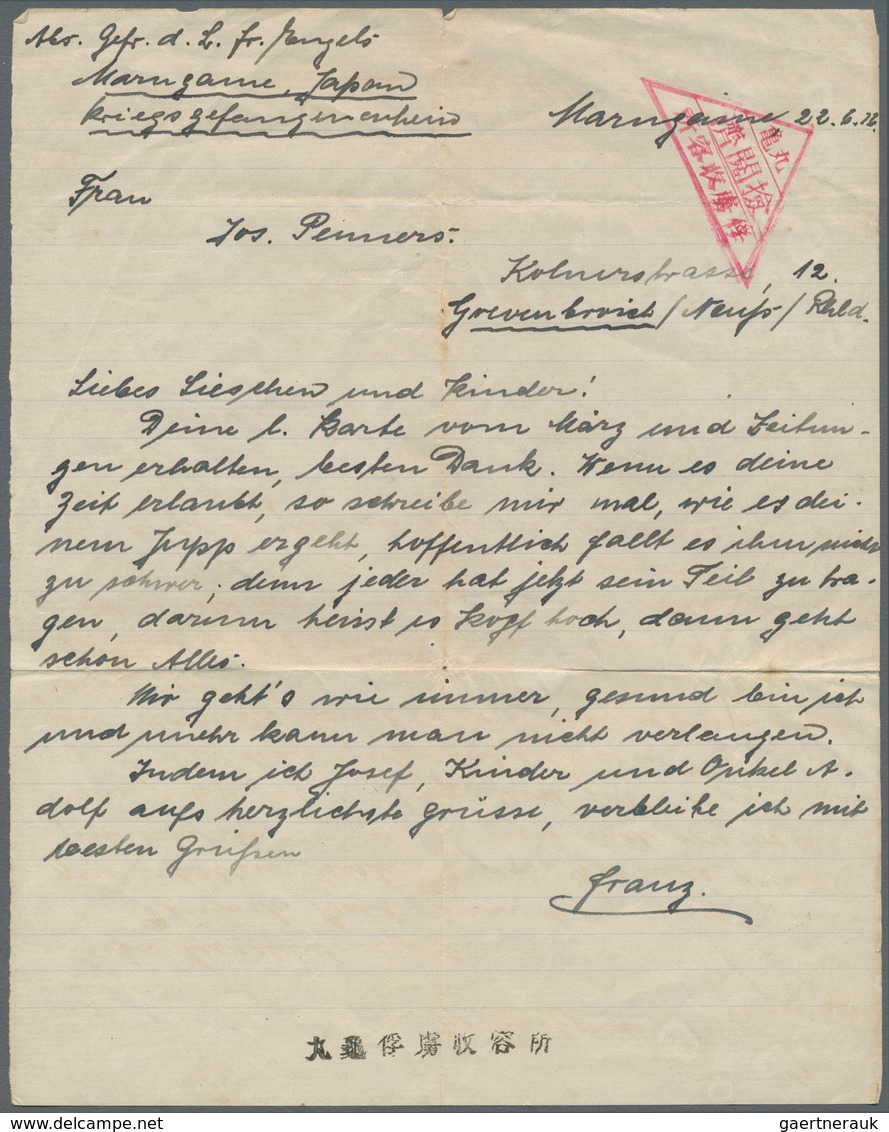 Abs. Gefr. d. L. Fr. Engels
Marugame, Japan
Kriegsgefangenenheim
Marugame 22.6.16.
丸亀
検閲済
俘虜収容所
Frau
Jos. Penners.
Kolnerstrasse, 12.
Grevenbroich / Neuß / Rhld.
Liebes Lieschen und Kinder!
Deine l. Karte vom März und Zeitun-
gen erhalten, besten Dank. Wenn es deine
Zeit erlaubt, so schreibe mir mal, wie es dei-
nem Jupp ergeht, hoffentlich fällt es ihm nicht
zu schwer; denn jeder hat jetzt sein Teil zu tra-
gen, darum heisst es Kopf hoch, dann geht
schon Alles.
Mir geht's wie immer, gesund bin ich
und mehr kann man nicht verlangen.
Indem ich Josef, Kinder und Onkel A-
dolf aufs herzlichste grüsse, verbleibe ich mit
besten Grüßen
Franz.
丸亀俘虜収容所
gaertnerauk